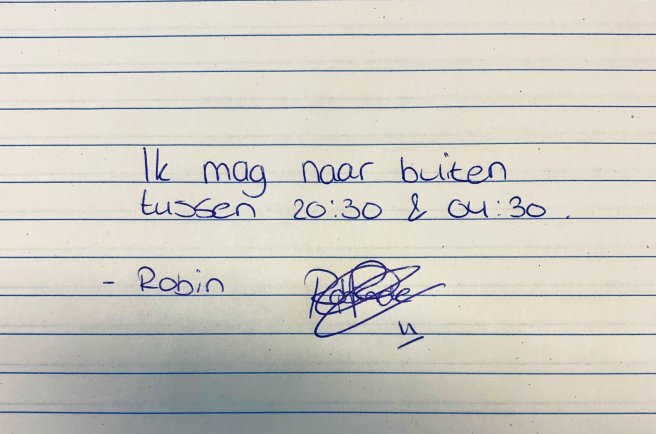 Ik mag naar buiten
tussen 20:30 & 04:30.
- Robin